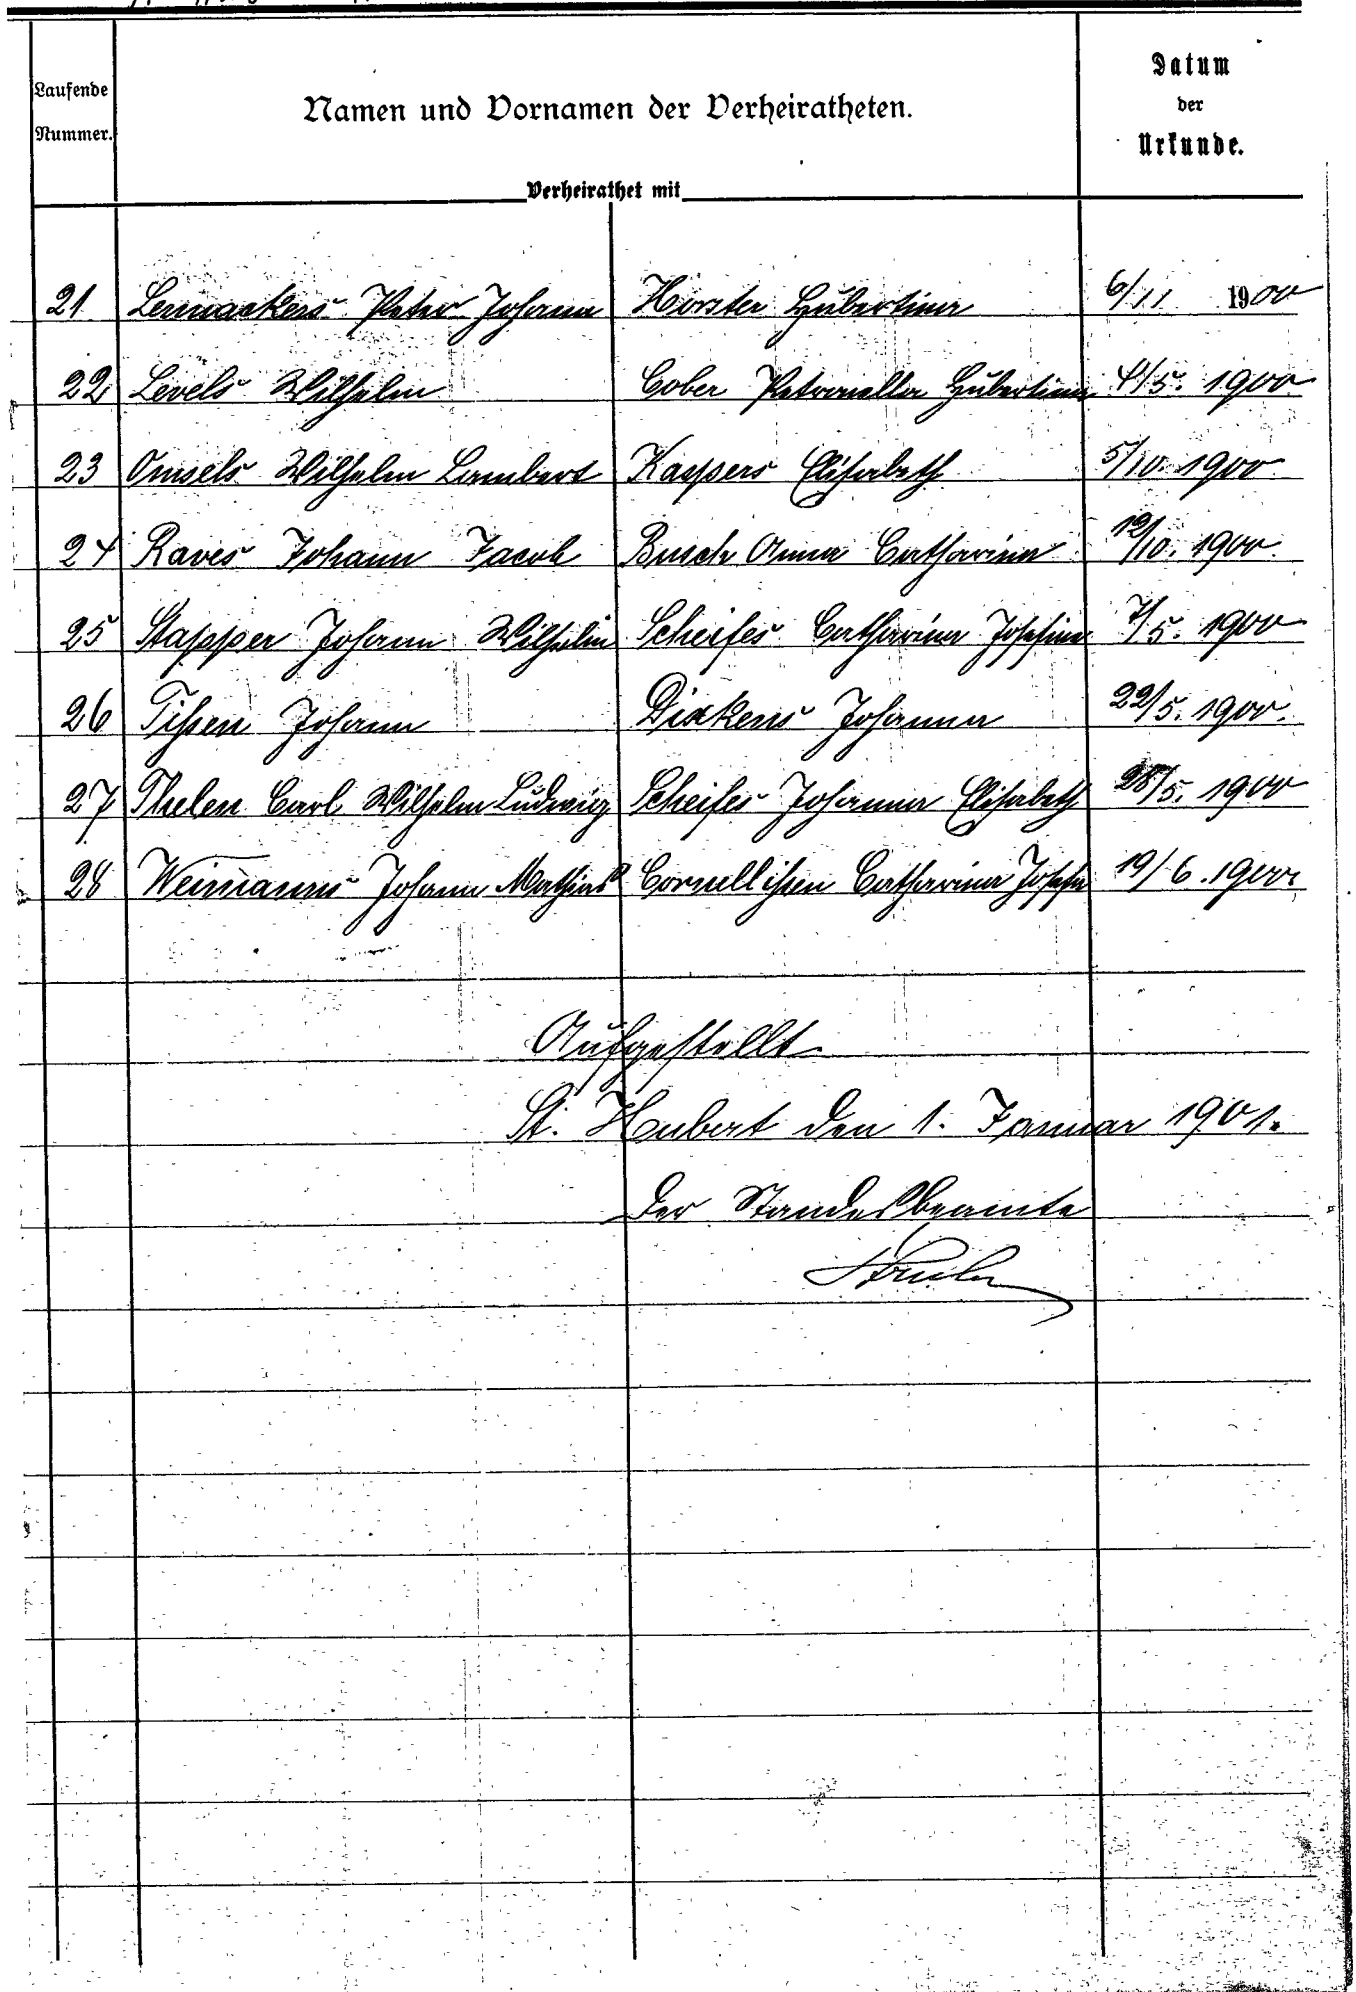 Laufende
Nummer.
Namen und Vornamen der Verheiratheten.
Datum
der
Urkunde.
Verheirathet mit
21 Lennackers Peter Johann Horster Hubertina 6/11 1900
22 Levels Wilhelm Cober Petronella Hubertina 4/5. 1900
23 Omsels Wilhelm Lambert Kaspers Elisabeth 5/10. 1900
24 Raves Johann Jacob Busch Anna Catharina 12/10. 1900
25 Stapper Johann Wilhelm Scheifes Catharina Josefina 7/5. 1900
26 Tissen Johann Dickens Johanna 22/5. 1900.
27 Thelen Carl Wilhelm Ludwig Scheifes Johanna Elisabeth 28/5. 1900
28 Weimanns Johann Mathias Cornellissen Catharina Josefa 19/6. 1900.
Aufgestellt
St. Hubert den 1. Januar 1901.
Der Standesbeamte